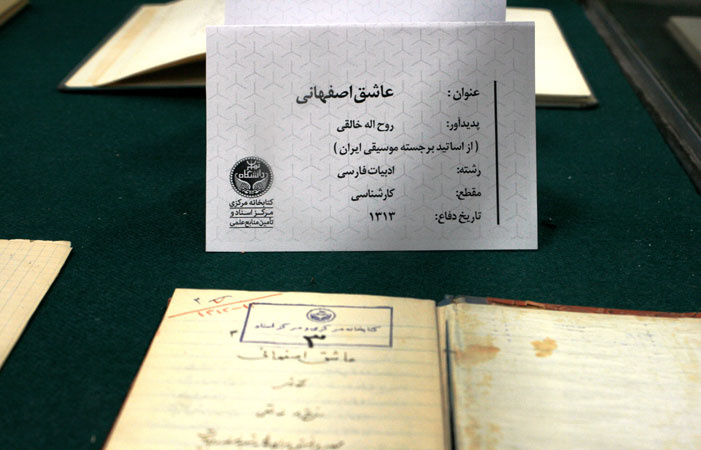 عنوان : عاشق اصفهانی
پدیدآور: روح اله خالقی
( از اساتید برجسته موسیقی ایران )
رشته: ادبیات فارسی
مقطع: کارشناسی
تاریخ دفاع: ۱۳۱۳
دانشگاه
کتابخانه مرکزی
مرکز اسناد و
تأمین منابع علمی
کتابخانه مرکزی و مرکز اسناد
۳
۳
عاشق اصفهانی